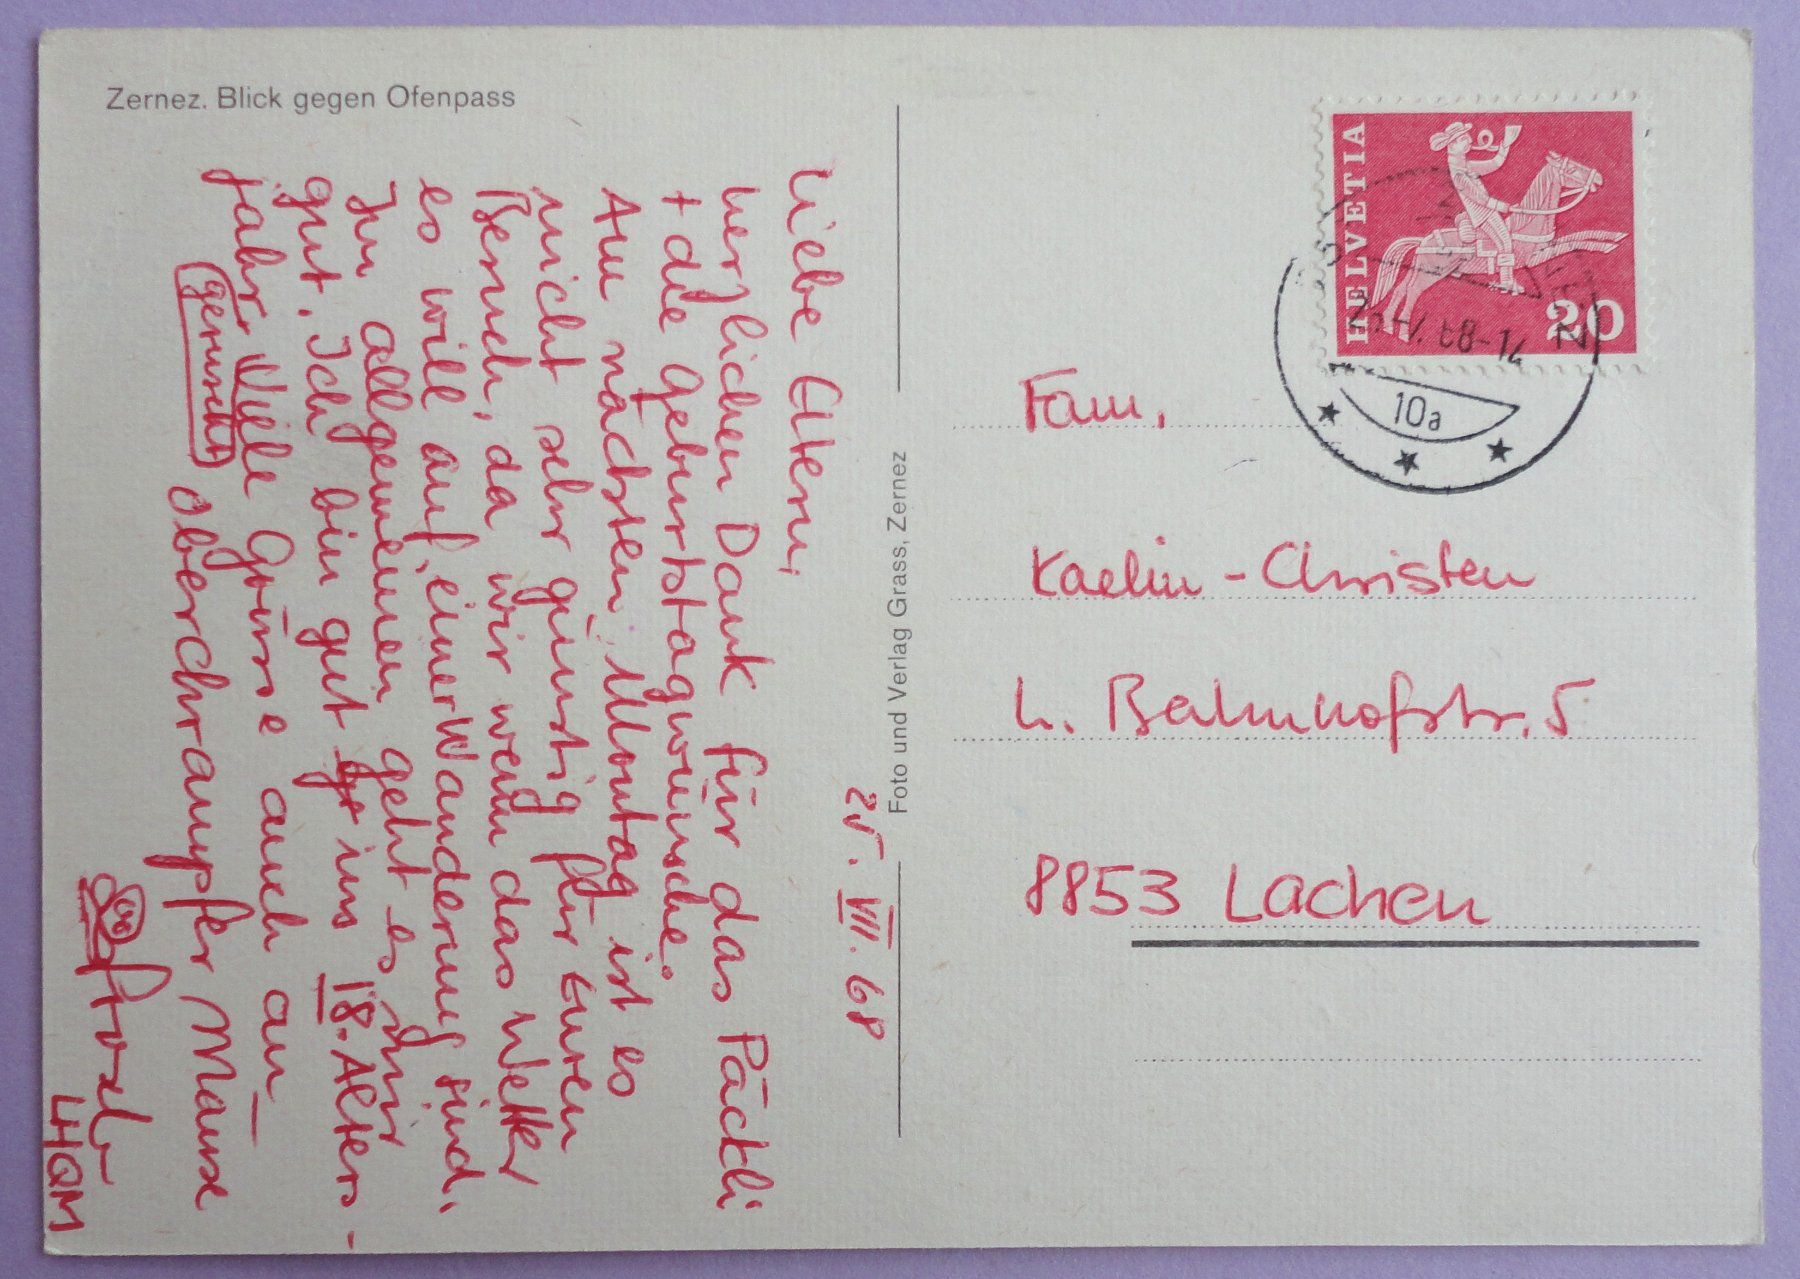 Zernez. Blick gegen Ofenpass
25. VII. 68
Liebe Eltern,
Herzlichen Dank für das Päckli
+ die Geburtstagwünsche.
Am nächsten Montag ist es
nicht sehr günstig für Euren
Besuch, da wir wenn das Wetter
es will auf einer Wanderung sind.
Im allgemeinen geht es mir
gut. Ich bin gut ins 18. Alters-
jahr gerutscht
Viele Grüsse auch an
Oberchrampfer Mäuse
LHQM
Foto und Verlag Grass, Zernez
HELVETIA
20
68-14
10a
Fam.
Kaelin-Christen
h. Bahnhofstr. 5
8853 Lachen